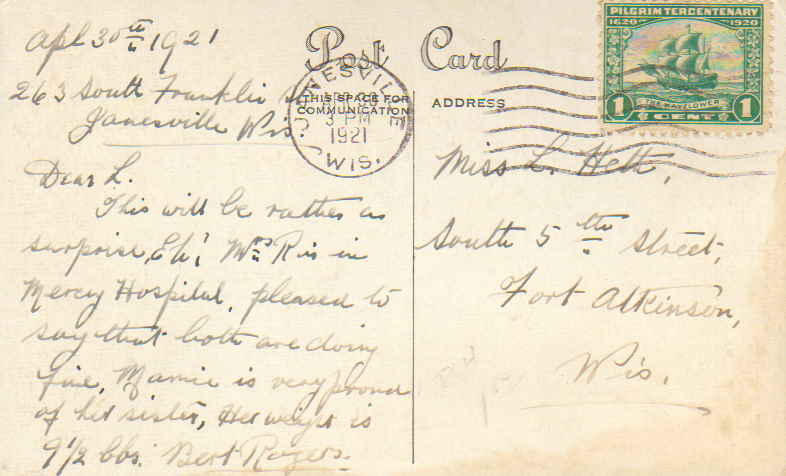 Apl 30th 1921
263 South Franklin St
Janesville Wis.
Dear L.
This will be rather a
surprise, Eh! Mrs R is in
Mercy Hospital, pleased to
say that both are doing
fine, Mamie is very proud
of her sister, Her weight is
9 1/2 lbs. Bert Rogers.
Post Card
THIS SPACE FOR
COMMUNICATION
ADDRESS
JANESVILLE
3 PM
1921
WIS.
PILGRIM TERCENTENARY
1620 1920
THE MAYFLOWER
1 CENT 1
Miss L.
South 5th Street,
Fort Atkinson,
Wis.